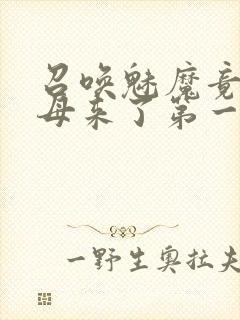 召唤魅魔竟
母来了第一
一野生奥拉夫